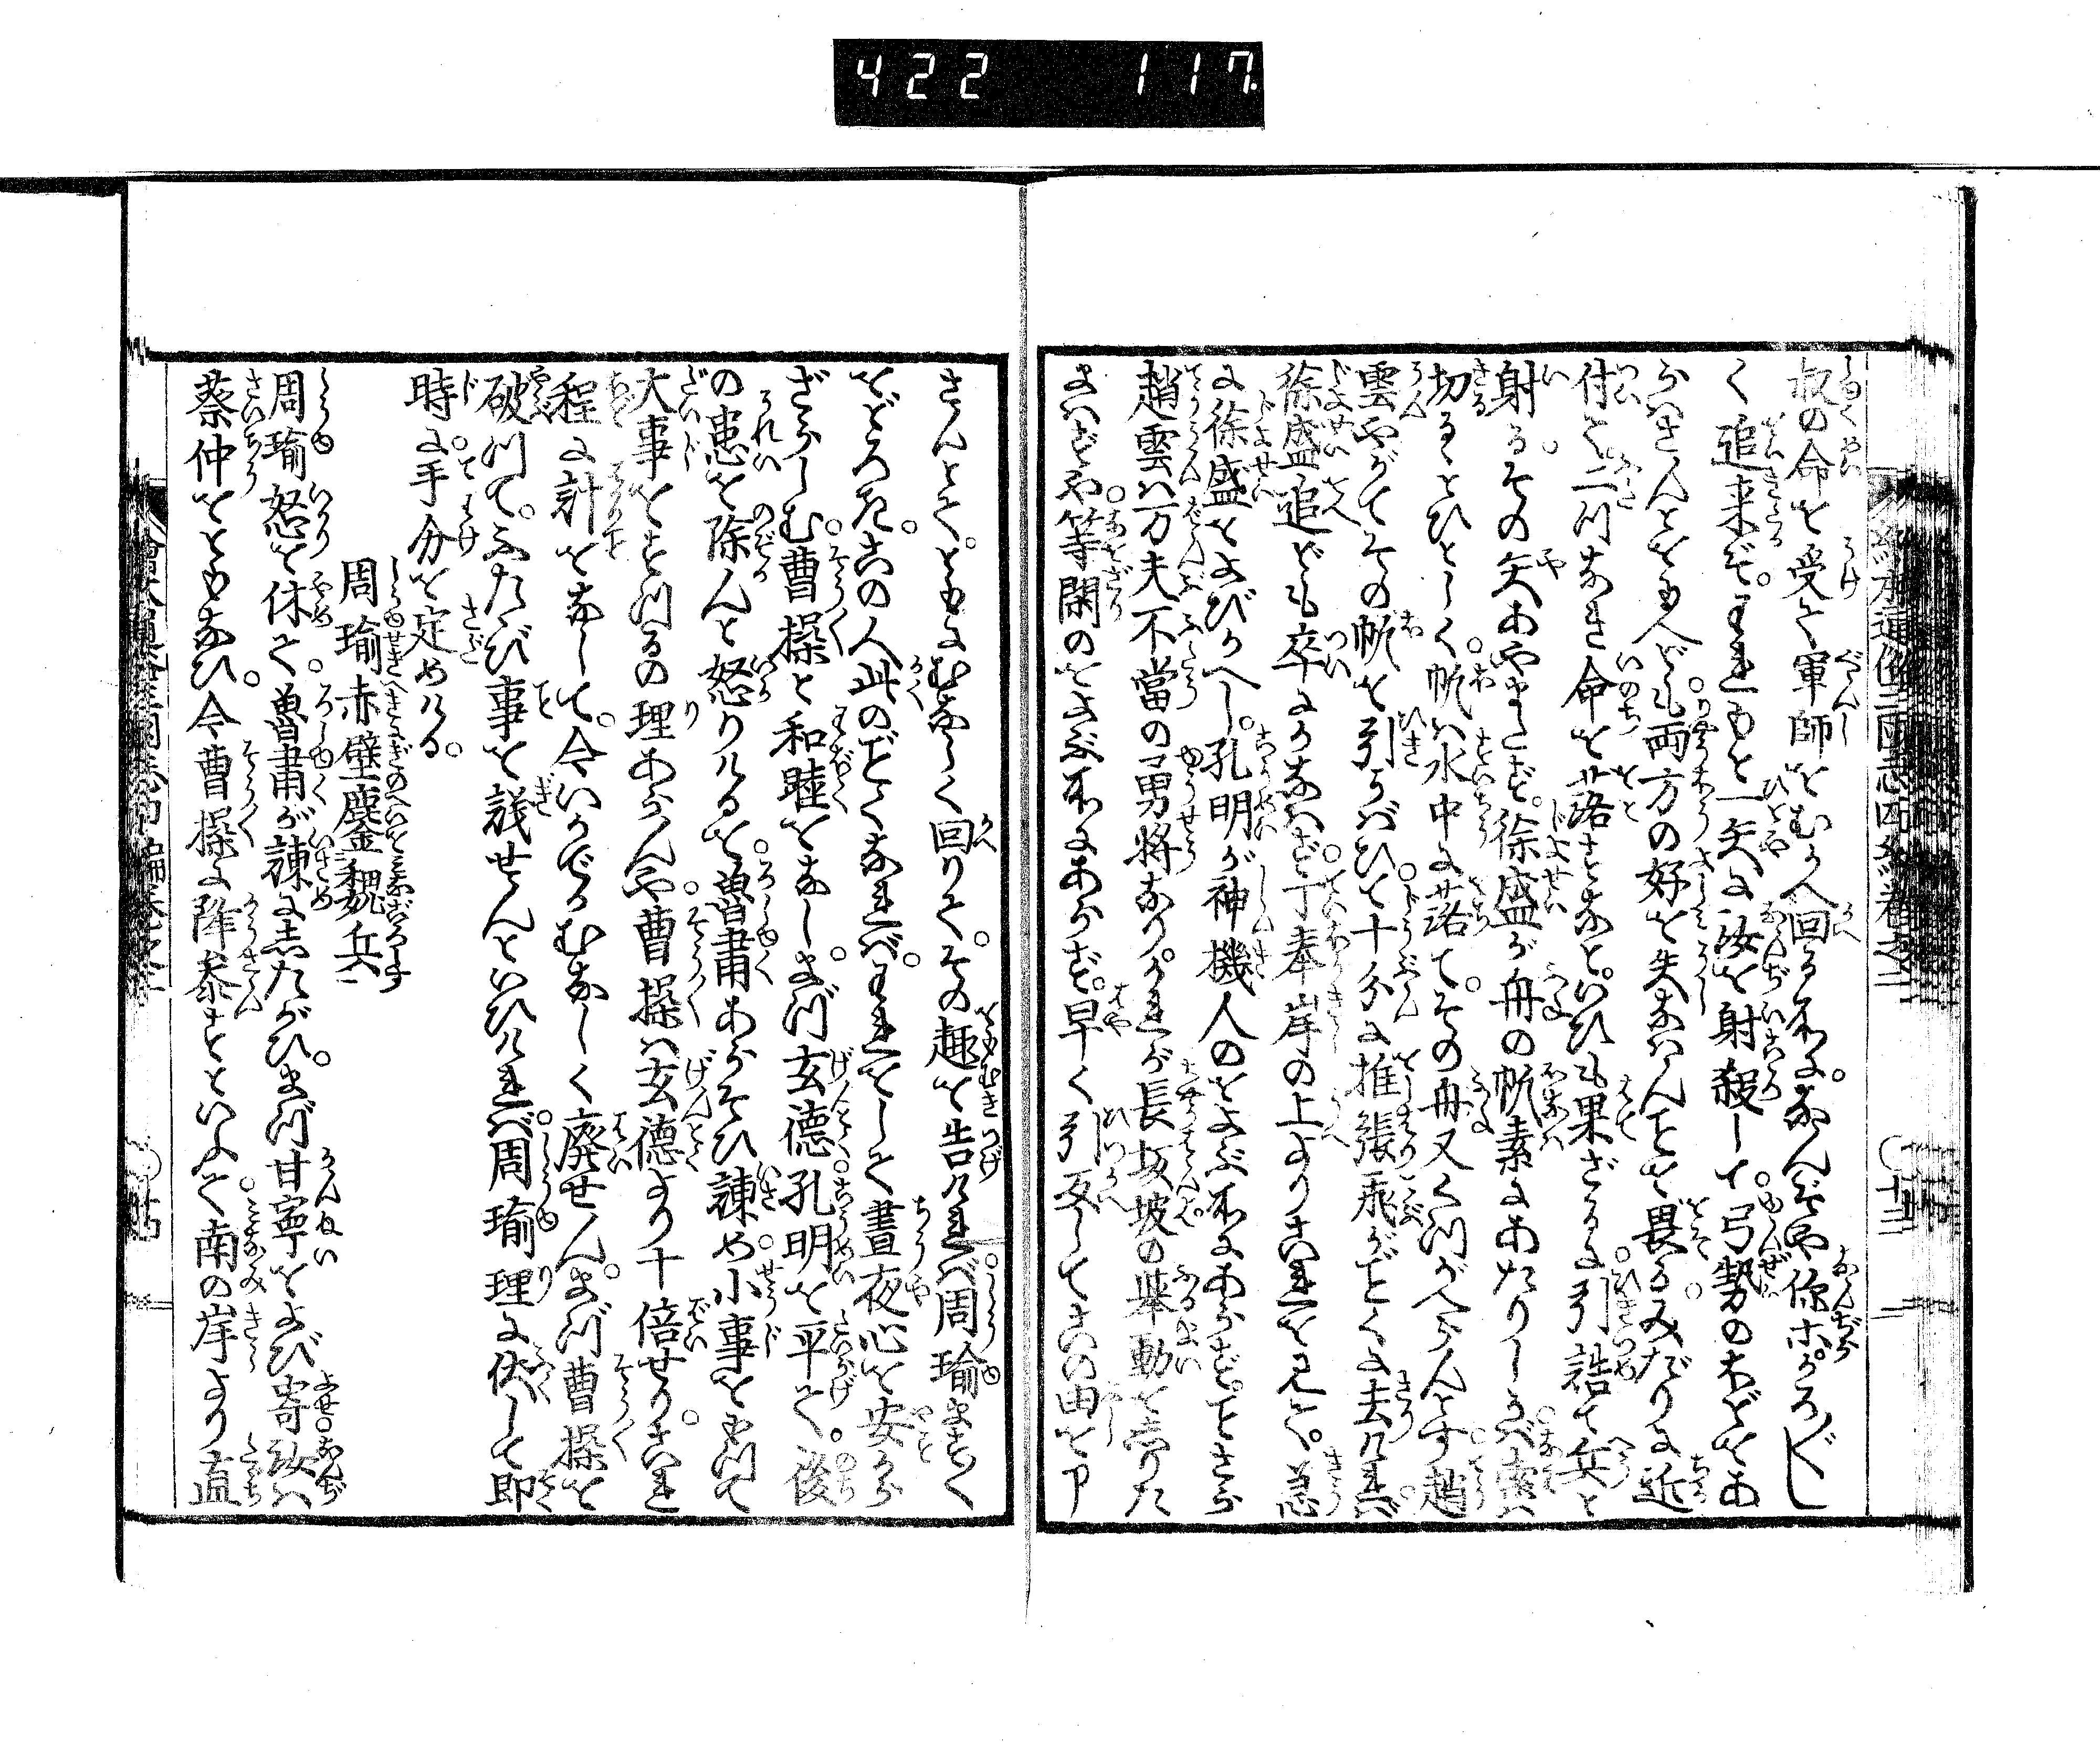 422 117.
叔の命を受て軍師をむかへ回る所に。なんぞや你等がごとし
く追来ぞ。われもと一矢に汝を射殺して。弓勢のほどをあ
らはさんとをもへども。両方の好を失なはんことを畏る。みだりに近
付て二つなき命を落すなと。いひも果ざるに引詰て兵と
射る。その矢あやまたず。徐盛が舟の帆素にあたりしかば。索は
切るゝとひとしく。帆は水中に落て。その舟又くつがへらんとす。趙
雲やがてその帆を引かけて。十分に推張飛がごとくに去ければ。
徐盛追ども卒にかなはず。丁奉岸の上よりこれを見て。急
に徐盛をよびかへし。孔明が神機人のをよぶ所にあらず。ことさら
趙雲は万夫不當の勇将なり。かれが長坂坡の挙動を
まはずや。等閑のをよぶ所にあらず。早く引返してこの由を申
さんとて。ともにむなしく回りて。その趣を告ければ。周瑜まことく
をどろき。この人此のごとくなれば。われをして晝夜心を安から
ざらしむ。曹操と和睦をなし。まづ玄徳孔明を平て。後
の患を除んと怒りける を。魯粛あらそひ諫め。小事をもつて
大事をすつるの理あらんや。曹操は玄徳より十倍せり。これ
程に計をなして。今いかでかむなしく廃せん。まづ曹操を
破つて。ふたゝび事を議せんといひければ。周瑜理に伏して即
時に手分を定めける。
周瑜赤壁鏖魏兵
周瑜怒を休て。魯粛が諫にしたがひ。まづ甘寧をよび寄。汝は
蔡仲をともなひ。今曹操に降参すといふて南の岸より直